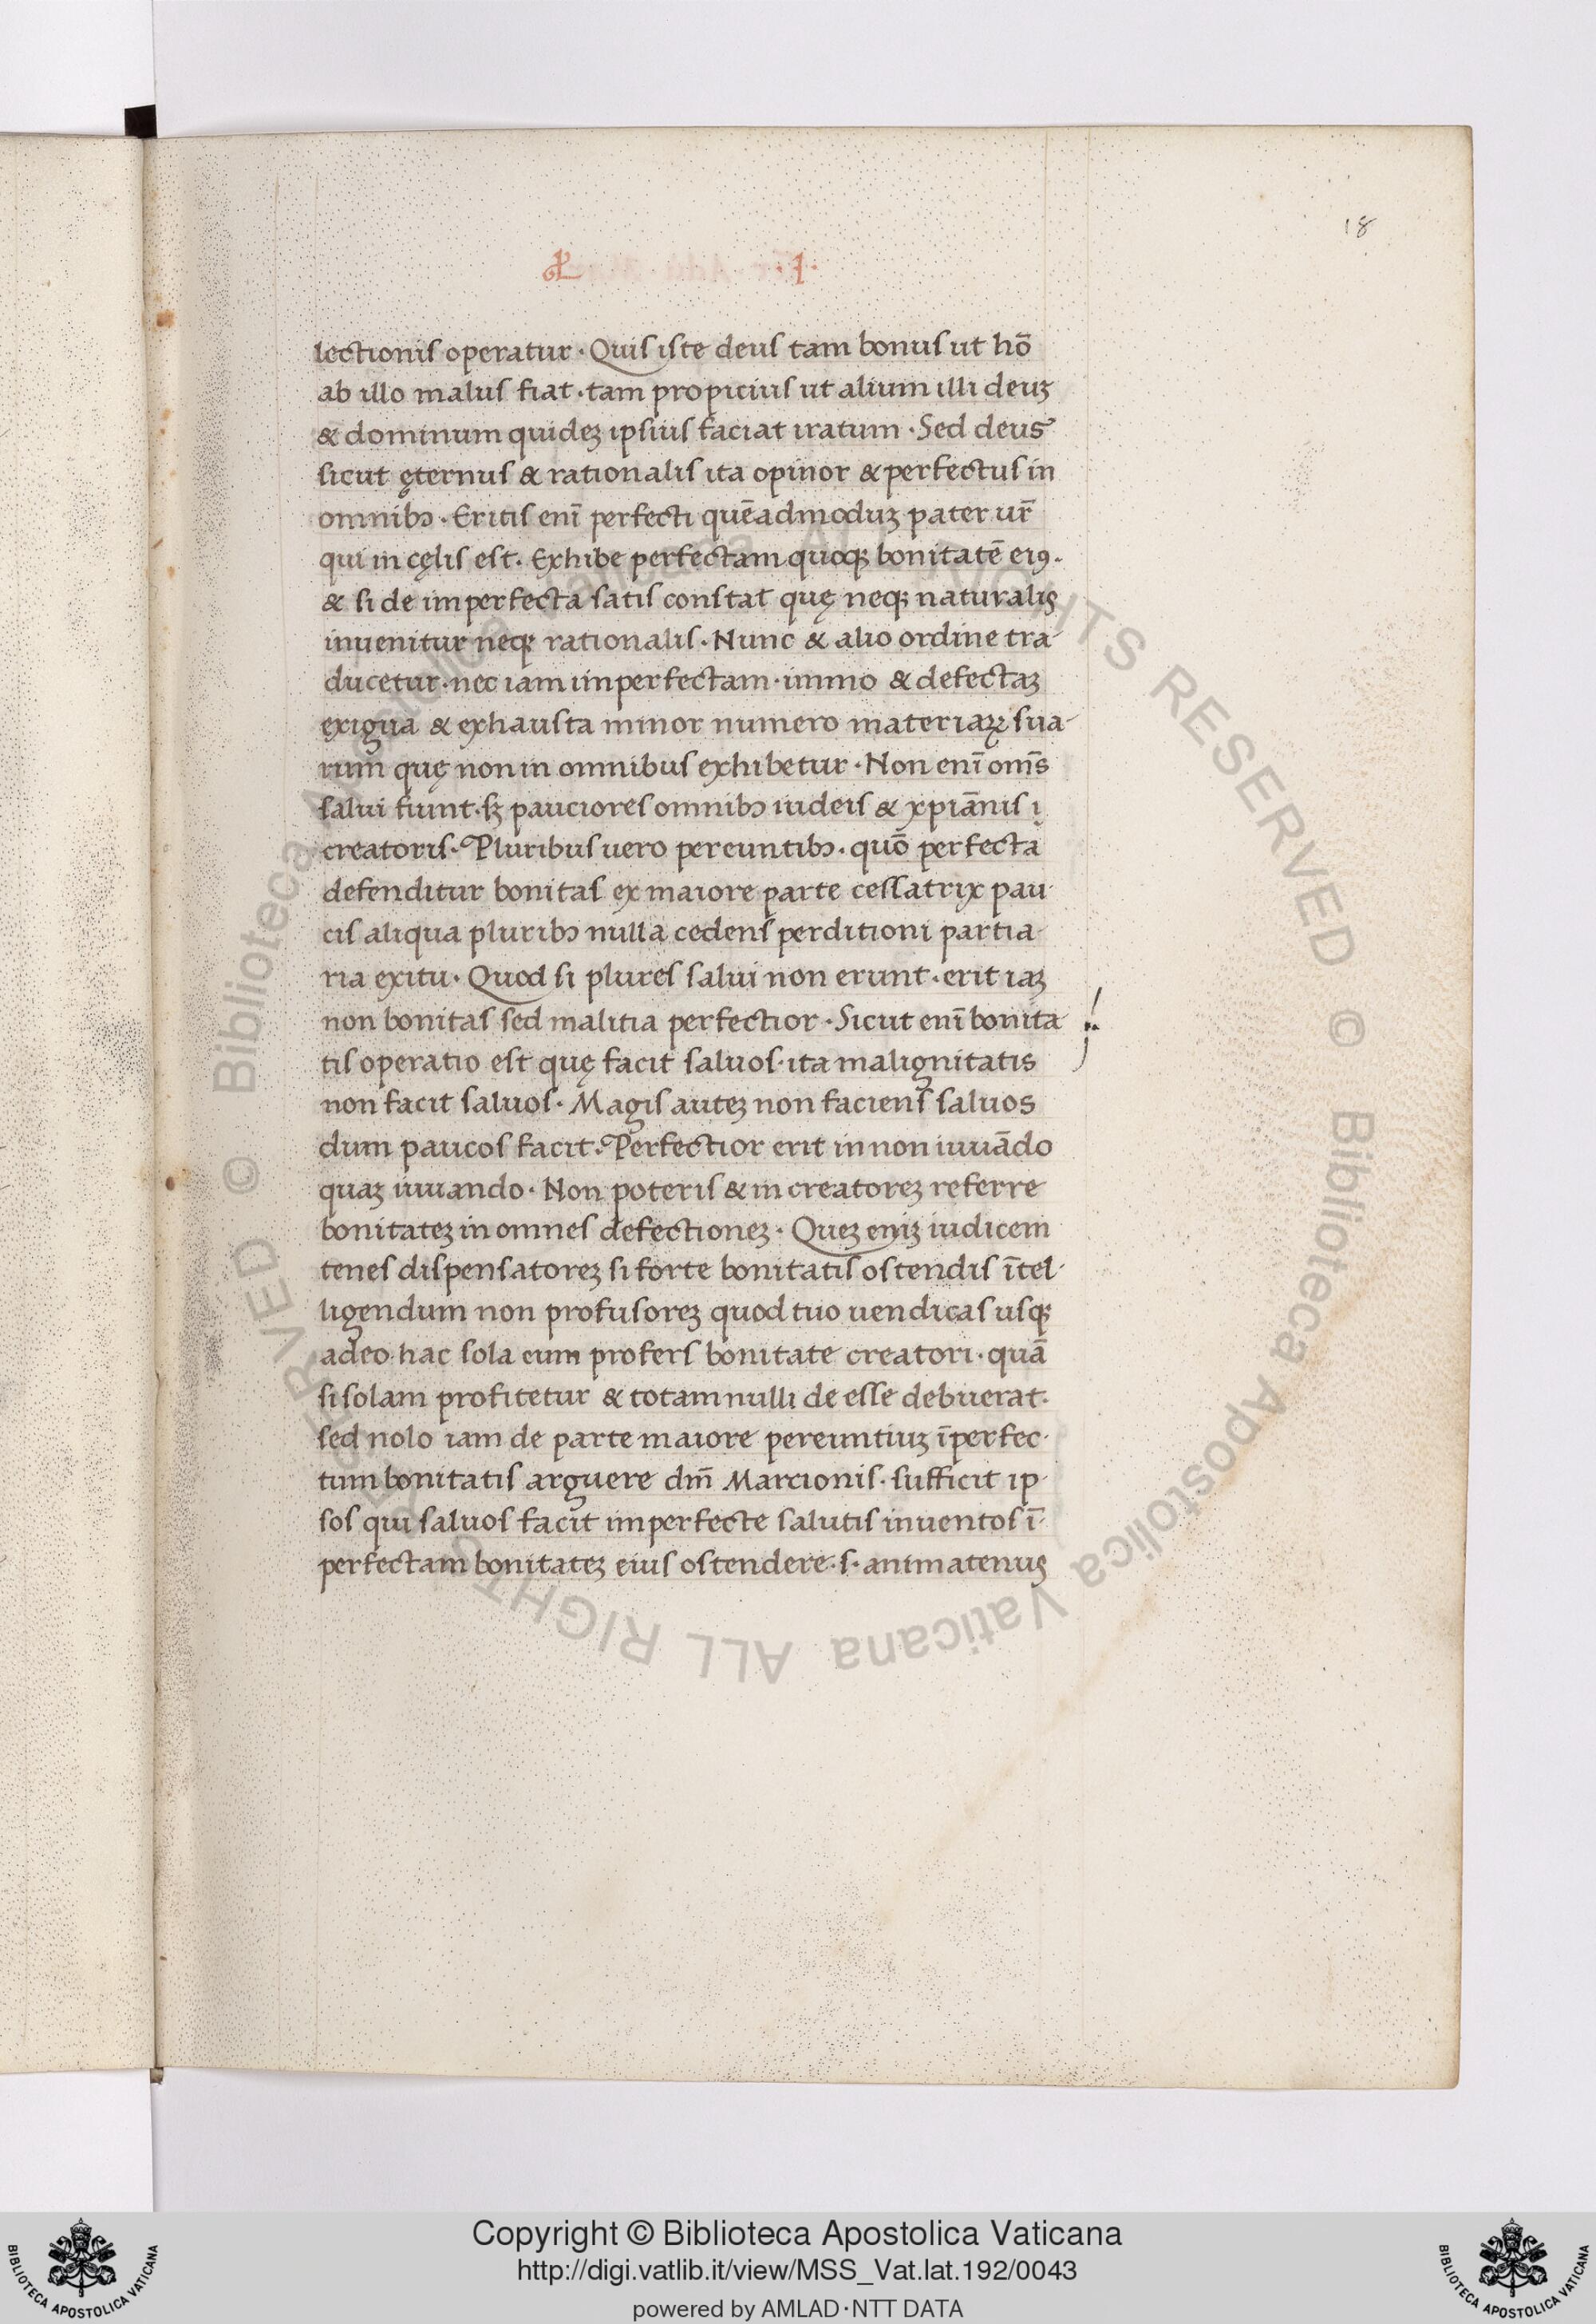 18
·I·
lectionis operatur · Quis iste deus tam bonus ut hō
ab illo malus fiat · tam propicius ut alium illi deuꝫ
& dominum quideꝫ ipsius faciat iratum · Sed deus
sicut ęternus & rationalis ita opinor & perfectus in
omnibꝫ · Eritis eni̅ perfecti quēadmoduꝫ pater ur̅
qui in cęlis est · Exhibe perfectam quoqꝫ bonitatē eiꝯ ·
& si de imperfecta satis constat quę neqꝫ naturalis
inuenitur neqꝫ rationalis · Nunc & alio ordine tra-
ducetur · nec iam imperfectam · immo & defectaꝫ
exigua & exhausta minor numero materiaꝝ sua-
rum quę non in omnibus exhibetur · Non eni̅ om̅s
salui fiunt · sꝫ pauciores omnibꝫ iudeis & xpiānis
creatoris · Pluribus uero pereuntibꝫ · quō perfecta
defenditur bonitas ex maiore parte cessatrix pau-
cis aliqua pluribꝫ nulla cedens perditioni partia-
ria exitu · Quod si plures salui non erunt · erit iaꝫ
non bonitas sed malitia perfectior · Sicut eni̅ bonita
tis operatio est quę facit saluos · ita malignitatis
non facit saluos · Magis auteꝫ non faciens saluos
dum paucos facit · Perfectior erit in non iuuādo
quaꝫ iuuando · Non poteris & in creatoreꝫ referre
bonitateꝫ in omnes defectioneꝫ · Queꝫ eniꝫ iudicem
tenes dispensatoreꝫ si forte bonitatis ostendis ītel-
ligendum non profusoreꝫ quod tuo uendicas usqꝫ
adeo hac sola eum profers bonitate creatori · quā
si solam profitetur & totam nulli de esse debuerat ·
sed nolo iam de parte maiore pereuntiuꝫ īperfec-
tum bonitatis arguere dm̅ Marcionis · sufficit ip-
sos qui saluos facit imperfecte salutis inuentos ī-
perfectam bonitateꝫ eius ostendere · s · animatenus
© Biblioteca Apostolica Vaticana ALL RIGHTS RESERVED © Biblioteca Apostolica Vaticana ALL RIGHTS RESERVED
Copyright © Biblioteca Apostolica Vaticana
http://digi.vatlib.it/view/MSS_Vat.lat.192/0043
powered by AMLAD·NTT DATA
BIBLIOTECA APOSTOLICA VATICANA
BIBLIOTECA APOSTOLICA VATICANA